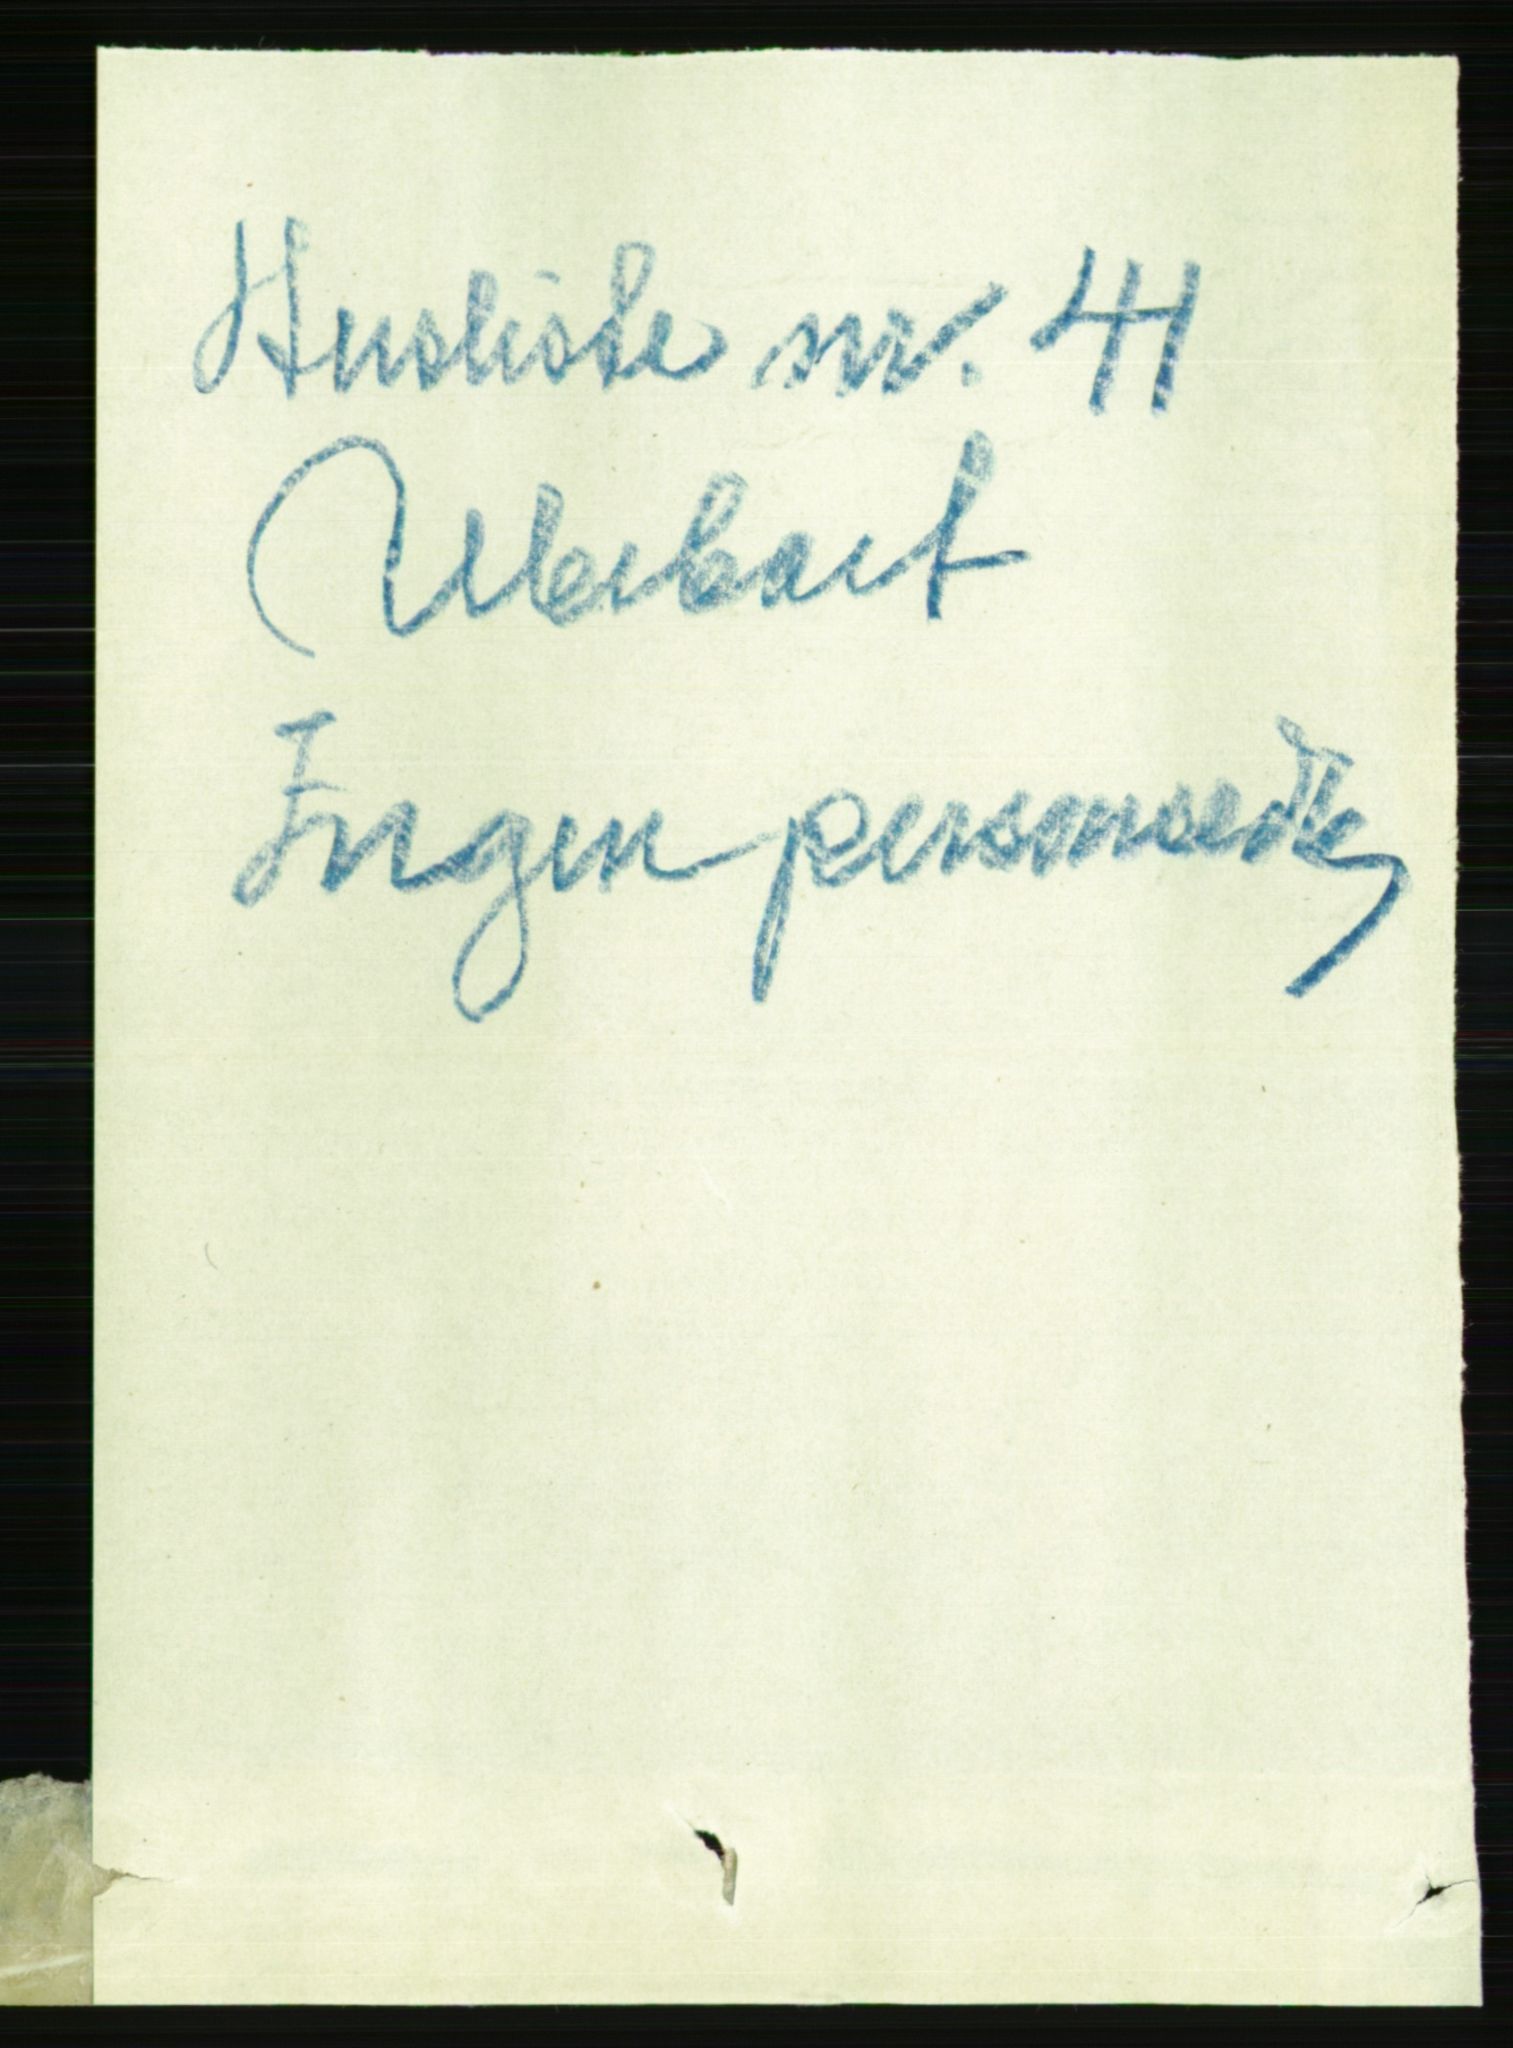 Husliste nr. 41
Ubeboet
Ingen personsedler